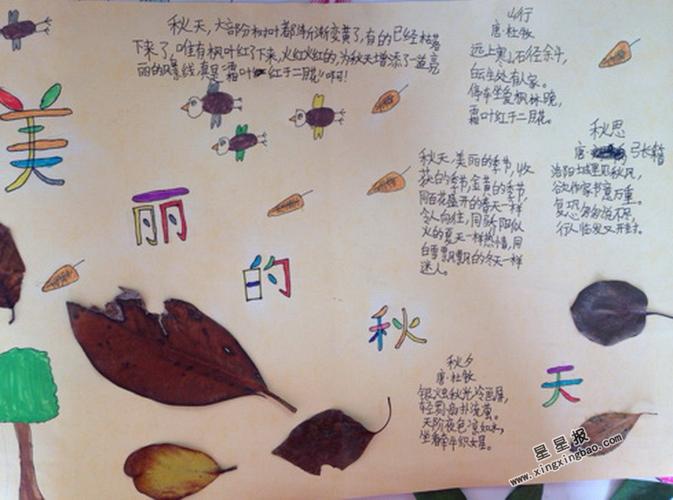 美丽的秋天
秋天，大部分树叶都渐渐变黄了，有的已经枯落
下来了，唯有枫叶红了下来，火红火红的，为秋天增添了一道亮
丽的风景线，真是"霜叶红于二月花"啊！
山行
唐·杜牧
远上寒山石径余斗，
白云生处有人家。
停车坐爱枫林晚，
霜叶红于二月花。
秋思
唐 张籍
洛阳城里见秋风，
欲作家书意万重。
复恐匆匆说不尽，
行人临发又开封。
秋天，美丽的季节，收
获的季节，金黄的季节，
同百花盛开的春天一样
令人向往，同骄阳似
火的夏天一样热情，同
白雪飘飘的冬天一样
迷人。
秋夕
唐·杜牧
银火虫秋光冷画屏，
轻罗小扇扑流萤。
天阶夜色凉如水，
坐看牵牛织女星。
星星报
www.xingxingbao.com